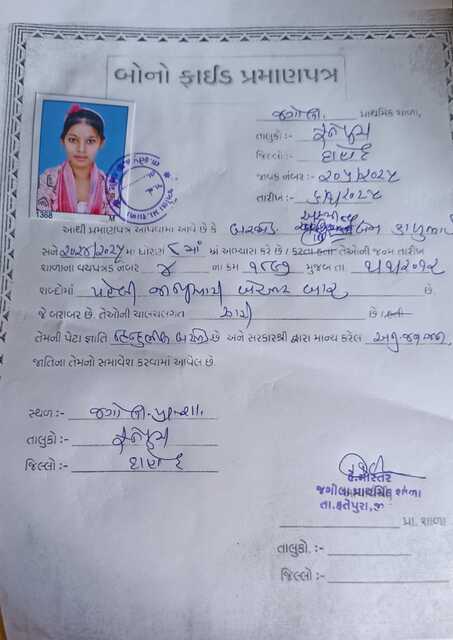 બોનો ફાઈડ પ્રમાણપત્ર
જગોલા. પ્રાથમિક શાળા,
તાલુકો :- ફતેપુરા
જિલ્લો :- દાહોદ
જાવક નંબર :- ૨૦૫/૨૦૨૫
તારીખ :-
1368 M
આથી પ્રમાણપત્ર આપવામાં આવે છે કે બરજોડ
સને ૨૦૨૪/૨૦૨૫ મા ધોરણ ૮ માં માં અભ્યાસ કરે છે / કરતા હતા તેઓની જન્મ તારીખ
શાળાના વયપત્રક નંબર ૪ ના ક્રમ મુજબ તા ૧/૧/૨૦૧૨
શબ્દોમાં પહેલી જાન્યુઆરી બે હજાર બાર છે.
જે બરાબર છે. તેઓની ચાલચલગત સારી છે / હતી
તેમની પેટા જ્ઞાતિ છે અને સરકારશ્રી દ્વારા માન્ય કરેલ અનુ.જનજાતિ
જાતિના તેમનો સમાવેશ કરવામાં આવેલ છે.
સ્થળ :- જગોલા પ્રા.શા.
તાલુકો :- ફતેપુરા
જિલ્લો :- દાહોદ
હે.માસ્તર
જગોલા પ્રાથમિક શાળા
તા.ફતેપુરા,
પ્રા. શાળા
તાલુકો. :-
જિલ્લો :-